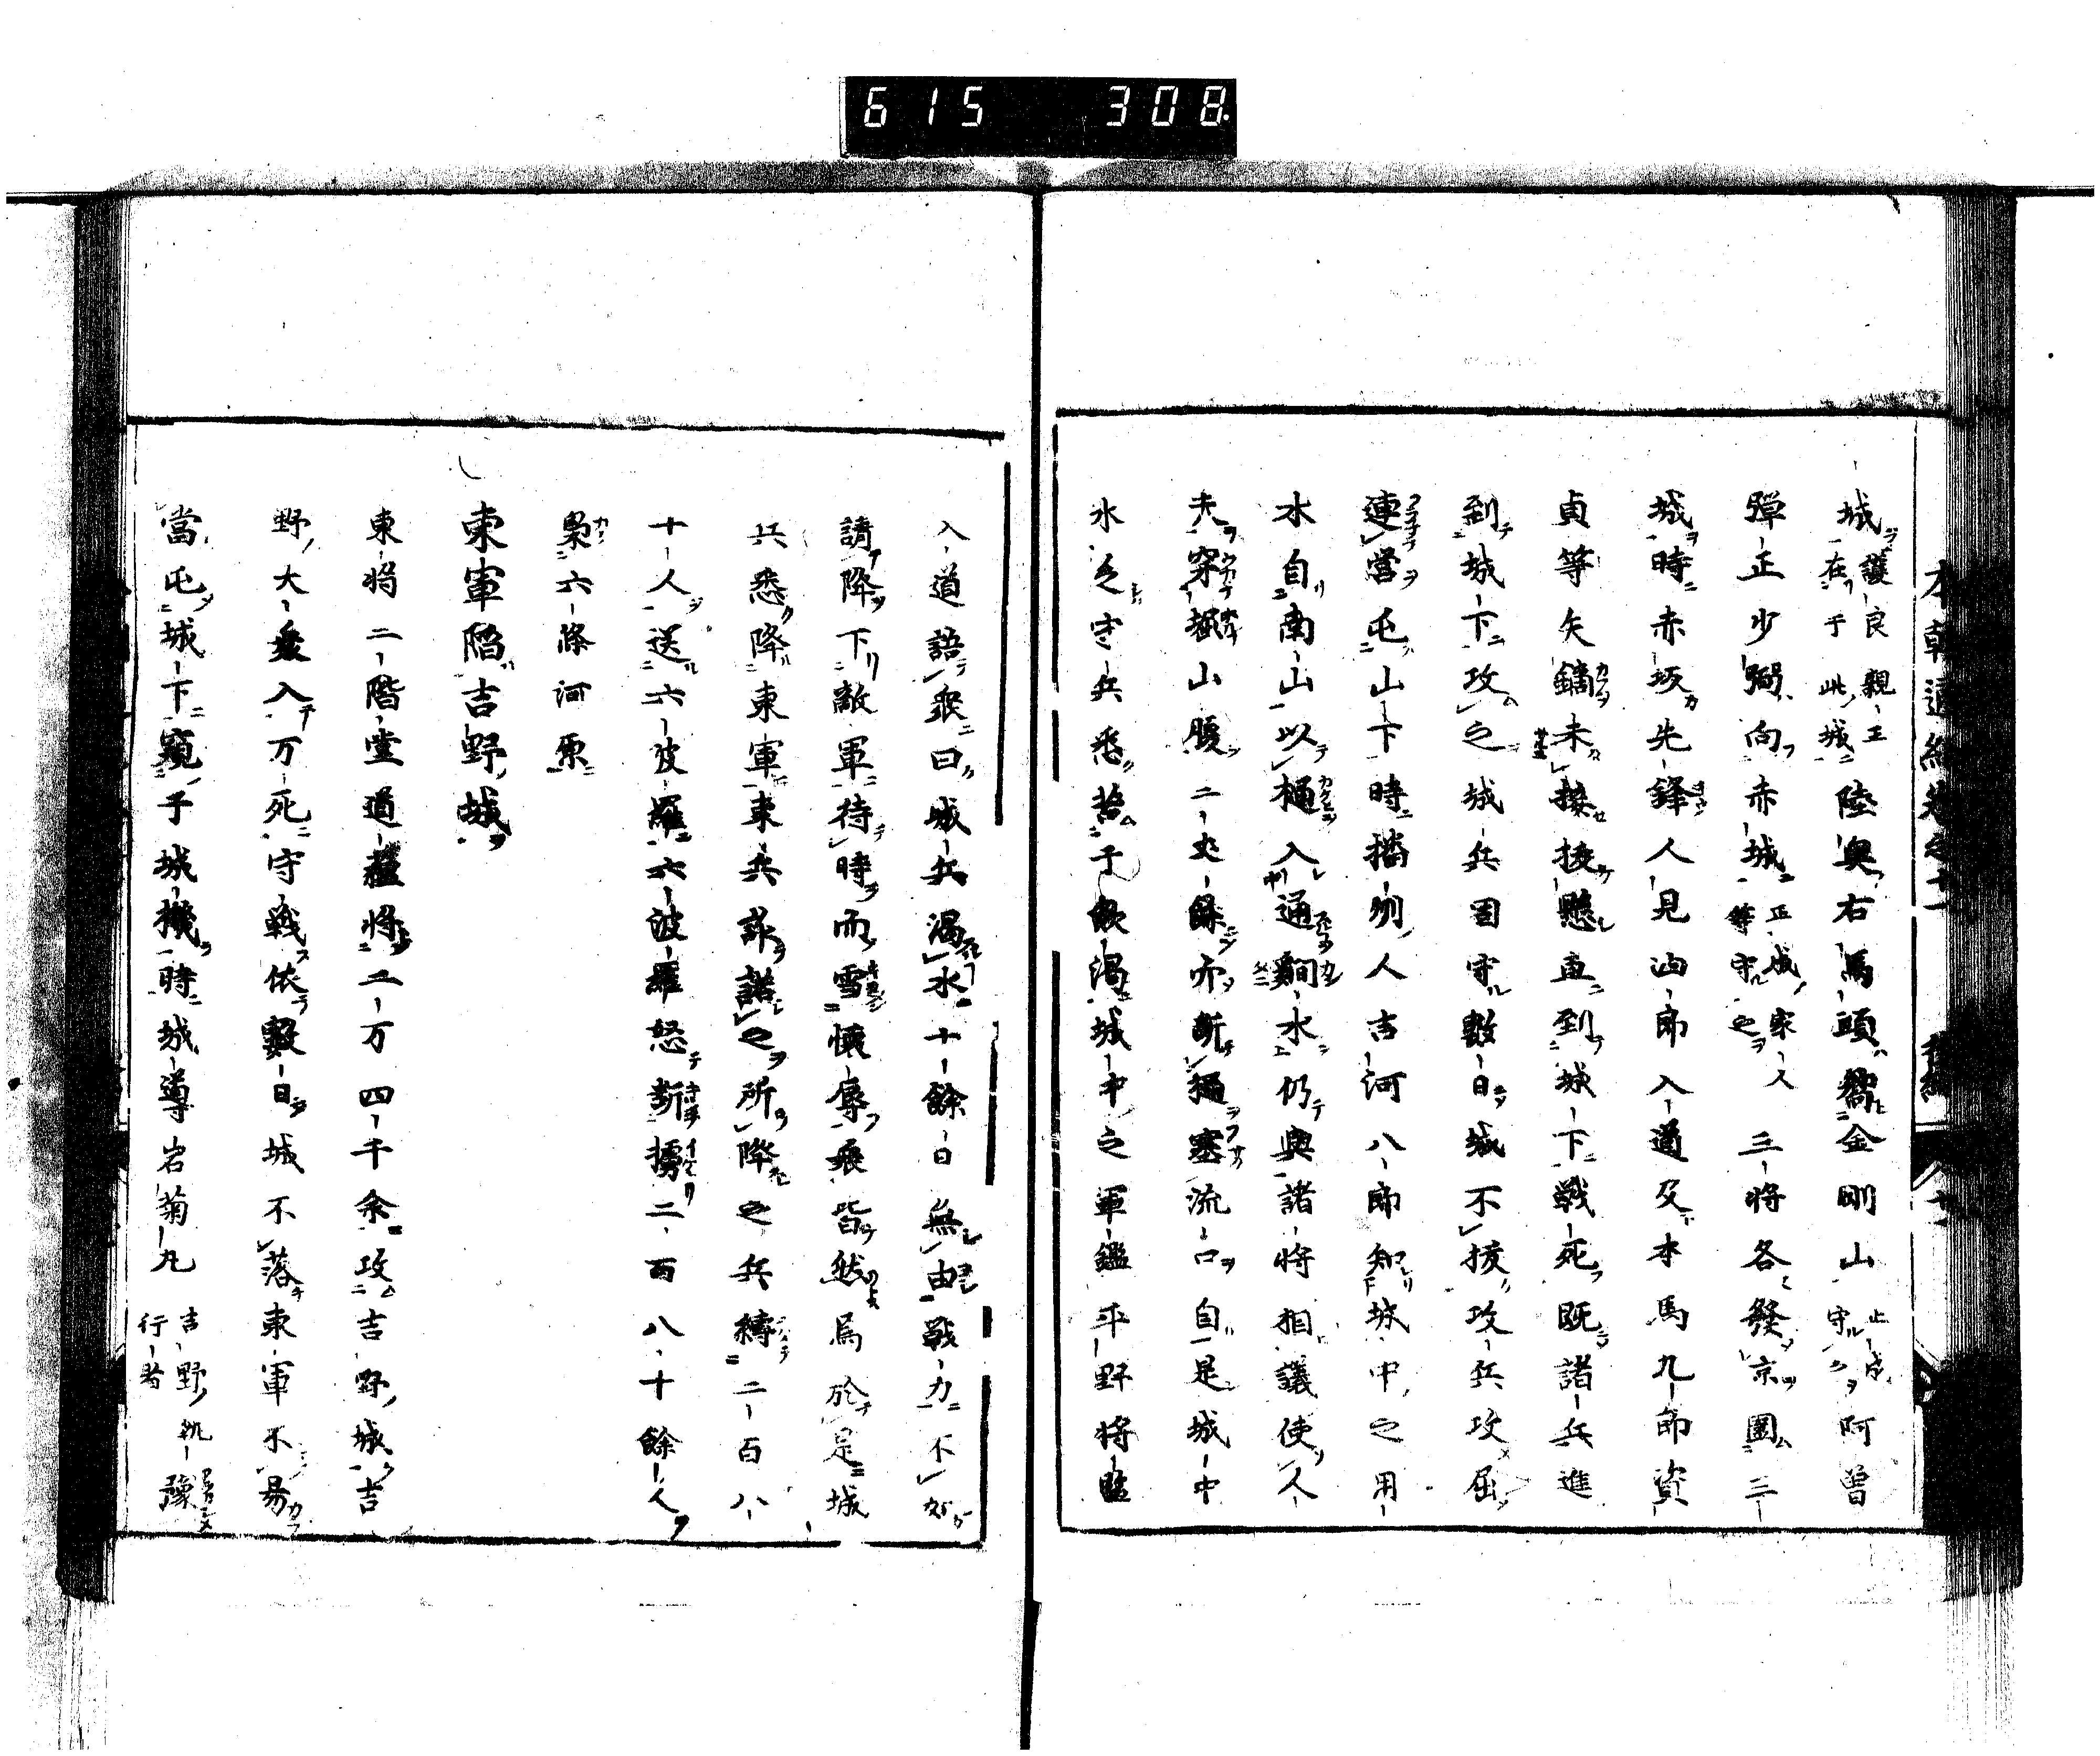 615 308
城護良親王在于此城陸奥右馬頭嚮金剛山正成守之阿曽
彈正少弼向赤城正成家人等守之三將各發京圍三
城時赤坂先鋒人見泊郎入道及本馬九郎資
貞等矢鏑未接挍懸直到城下戦死既諸兵進
到城下攻之城兵固守數日城不拔攻兵攻屈
連營屯山下時播州人吉河八郎知城中之用
水自南山以樋入通澗水仍與諸將相議使人
夫穿掘山腹二丈餘亦断樋塞流口自是城中
水乏守兵悉苦于飲渇城中之軍鑑平野將監
入道語衆曰城兵渇水十餘日無由戰力不如
請降下敵軍待時而雪懐辱衆皆然焉於是城
兵悉降東軍東兵詠諾之所降之兵縛二百八
十人送六波羅六波羅怒斬擄二百八十餘人
梟六條河原
東軍陷吉野城
東將二階堂道蘊將二万四千余攻吉野城吉
野大衆入万死守戦依數日城不落東軍不易
當屯城下窺子城機時城導岩菊丸吉野執行者豫